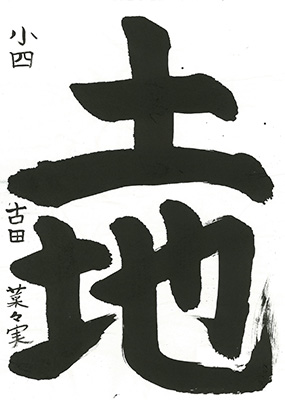 土地
小四
古田 菜々実